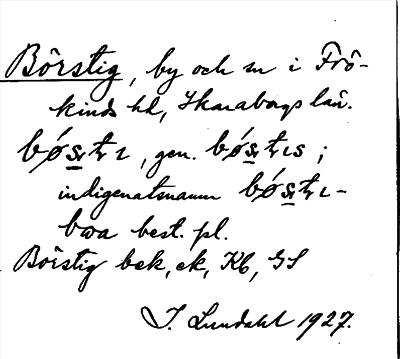 Börstig, by och sn i Frö-
kinds hd, Skaraborgs län.
bǿstɩ, gen. bǿstɩs ;
indigenatsnamn bǿstɩ-
bɷa best. pl.
Börstig bek, ek, Kb, GS
I. Lundahl 1927.